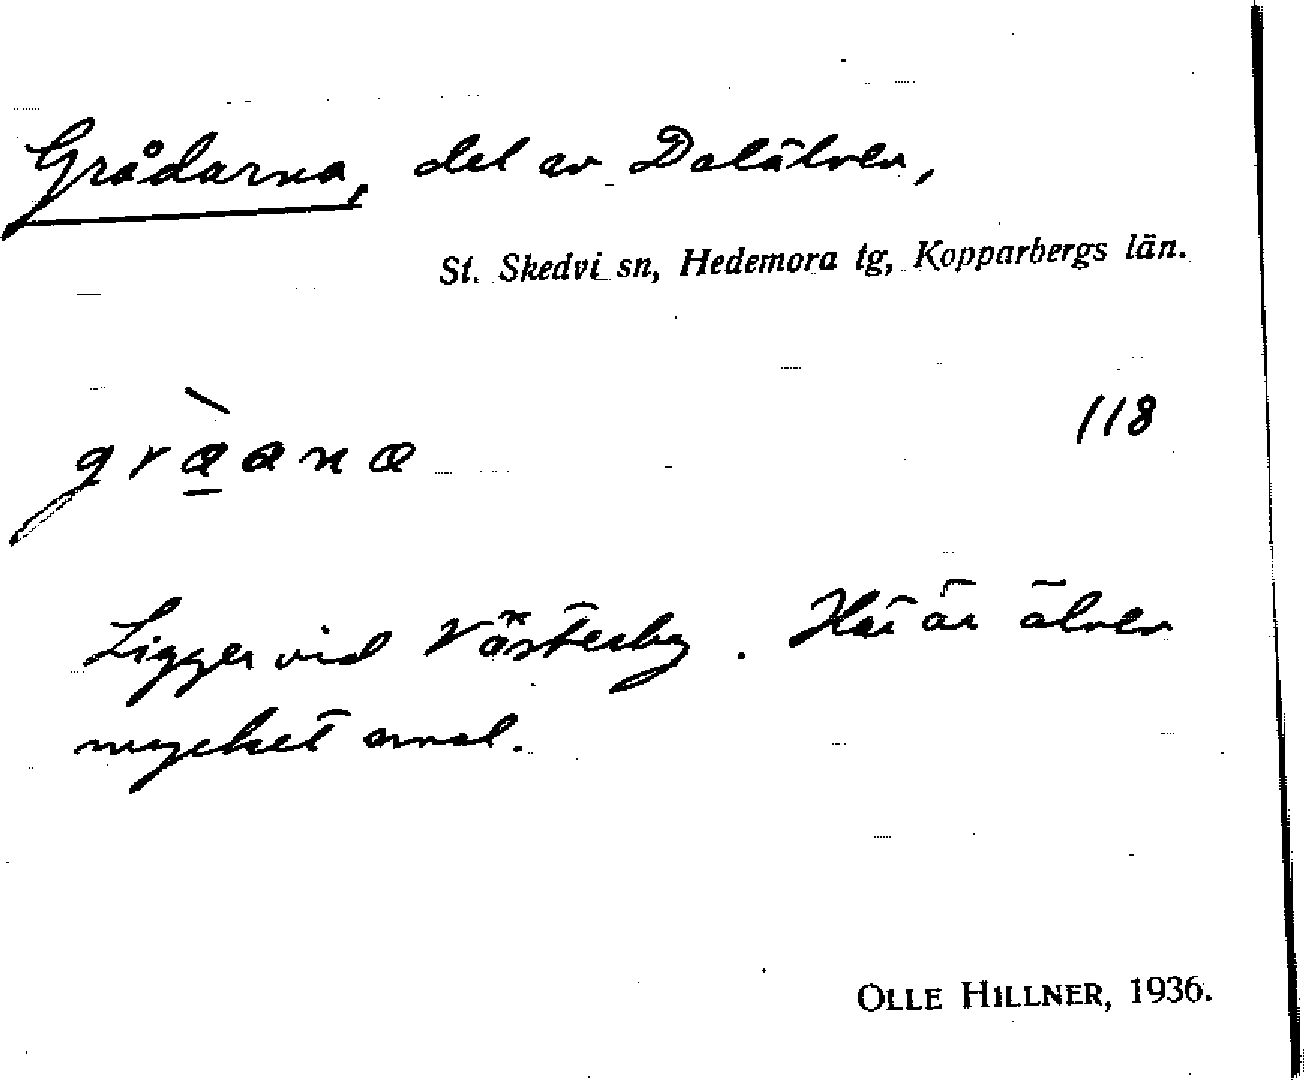 Grådarna, del av Dalälven,
St. Skedvi sn, Hedemora tg, Kopparbergs län.
118
gràana
Ligger vid Västerby. Här är älven
mycket smal.
OLLE HILLNER, 1936.